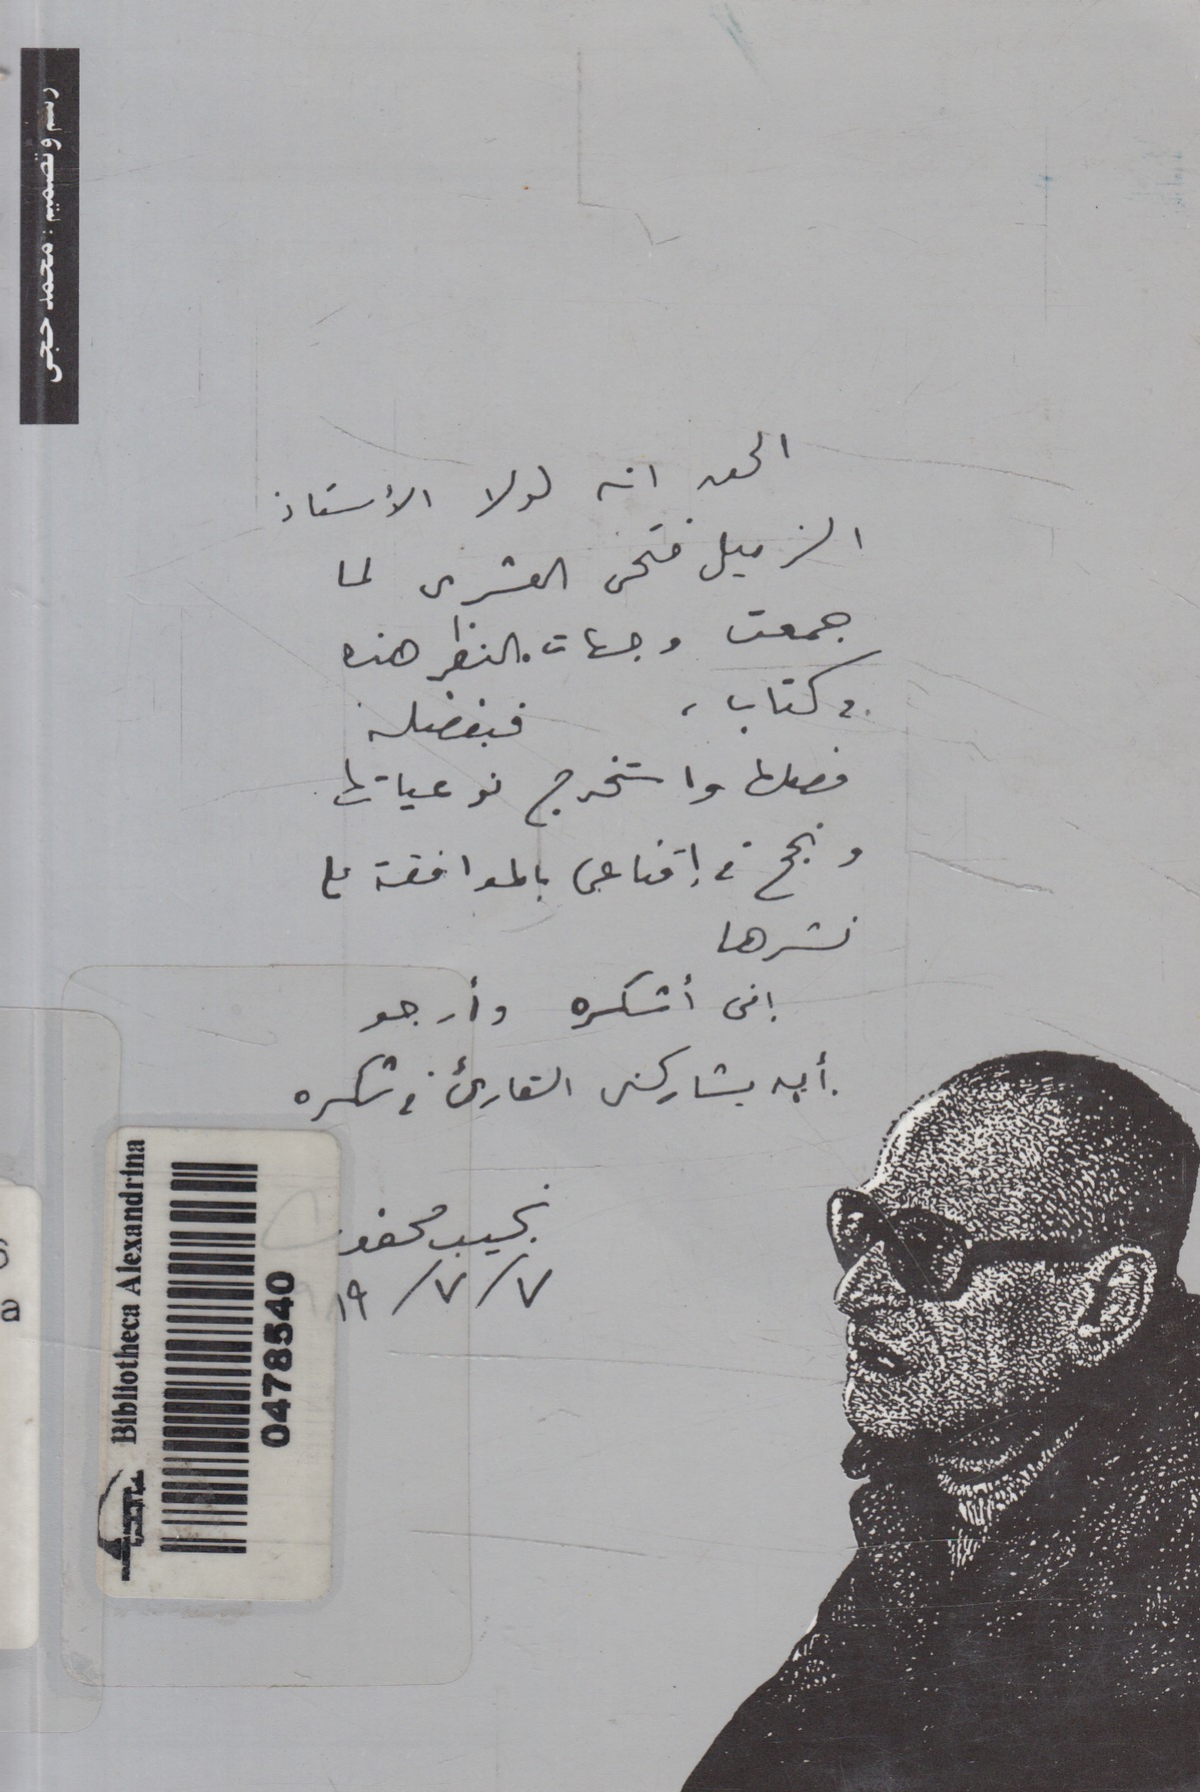 رسم وتصميم : محمد حجى
الحق انه لولا الأستاذ
الزميل فتحى العشرى لما
جمعت وجهات النظر هذه
فى كتاب ، فبفضله
فصلها واستخرج نوعياتها
ونجح فى إقناعى بالموافقة على
نشرها
إنى أشكره وأرجو
أن يشاركنى القارئ فى شكره
نجيب محفوظ
٧/٧/١٩
Bibliotheca Alexandrina
0478540